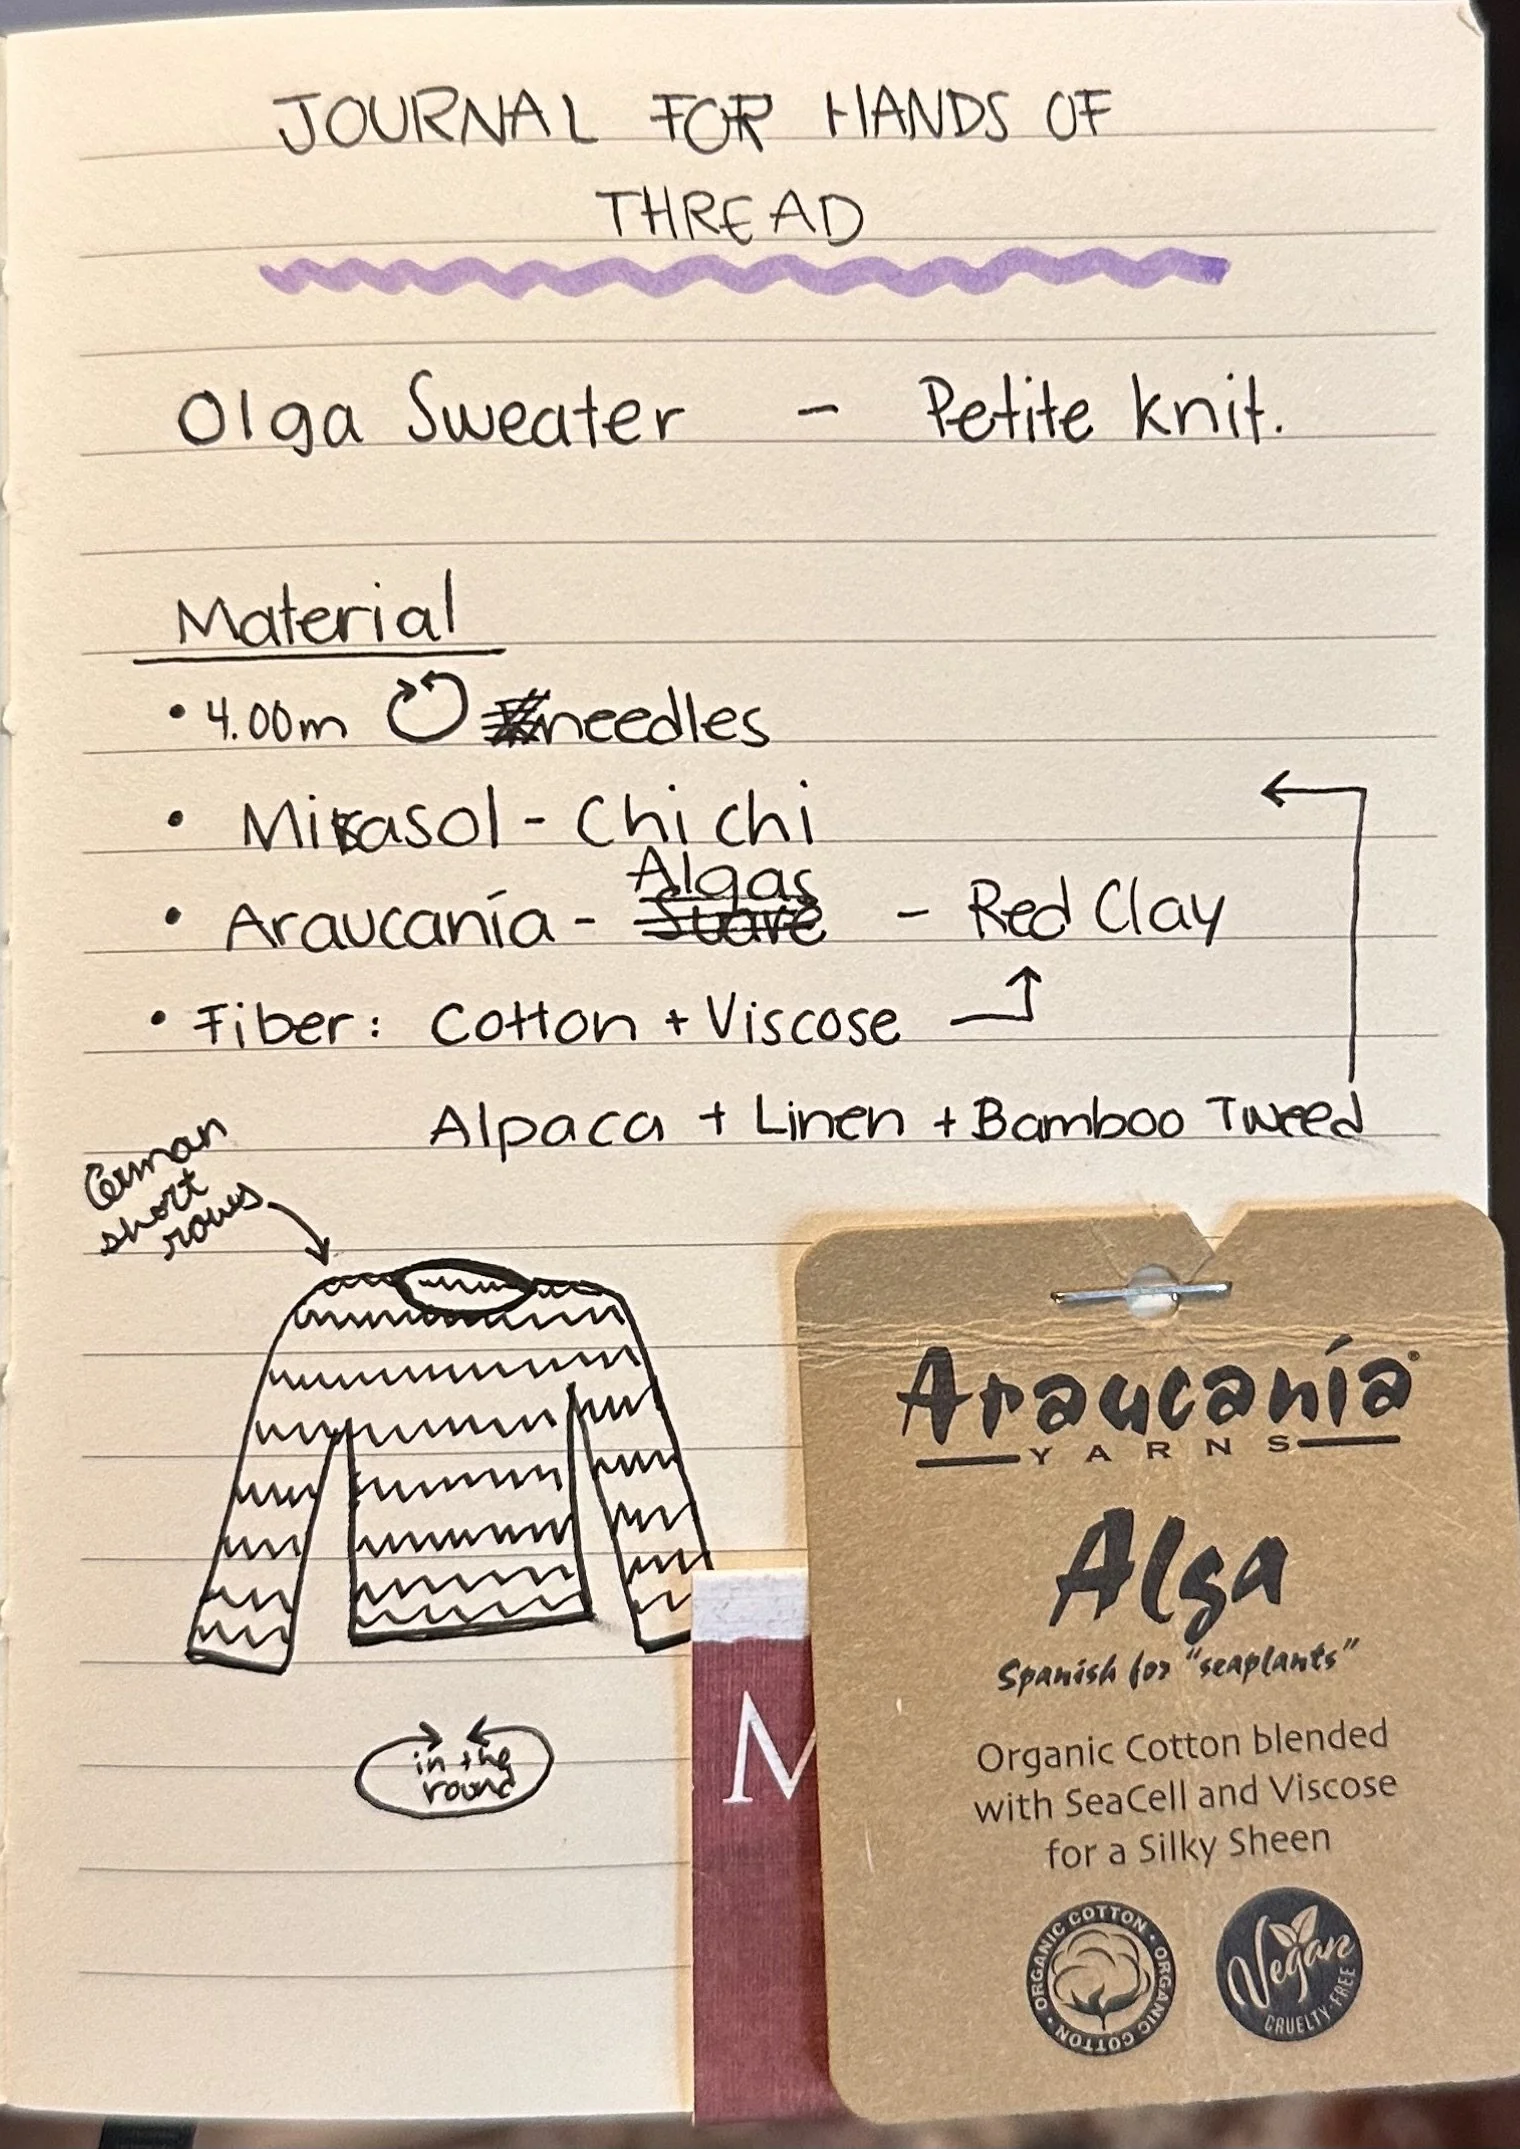 JOURNAL FOR HANDS OF
THREAD
Olga Sweater - Petite knit.
Material
• 4.00m needles
• Mirasol - Chi chi
• Araucanía - Algas - Red Clay
• Fiber: Cotton + Viscose
Alpaca + Linen + Bamboo Tweed
German
short
rows
in the
round
M
Araucanía
YARNS
Alga
Spanish for "seaplants"
Organic Cotton blended
with SeaCell and Viscose
for a Silky Sheen
ORGANIC COTTON • ORGANIC COTTON •
Vegan
CRUELTY-FREE